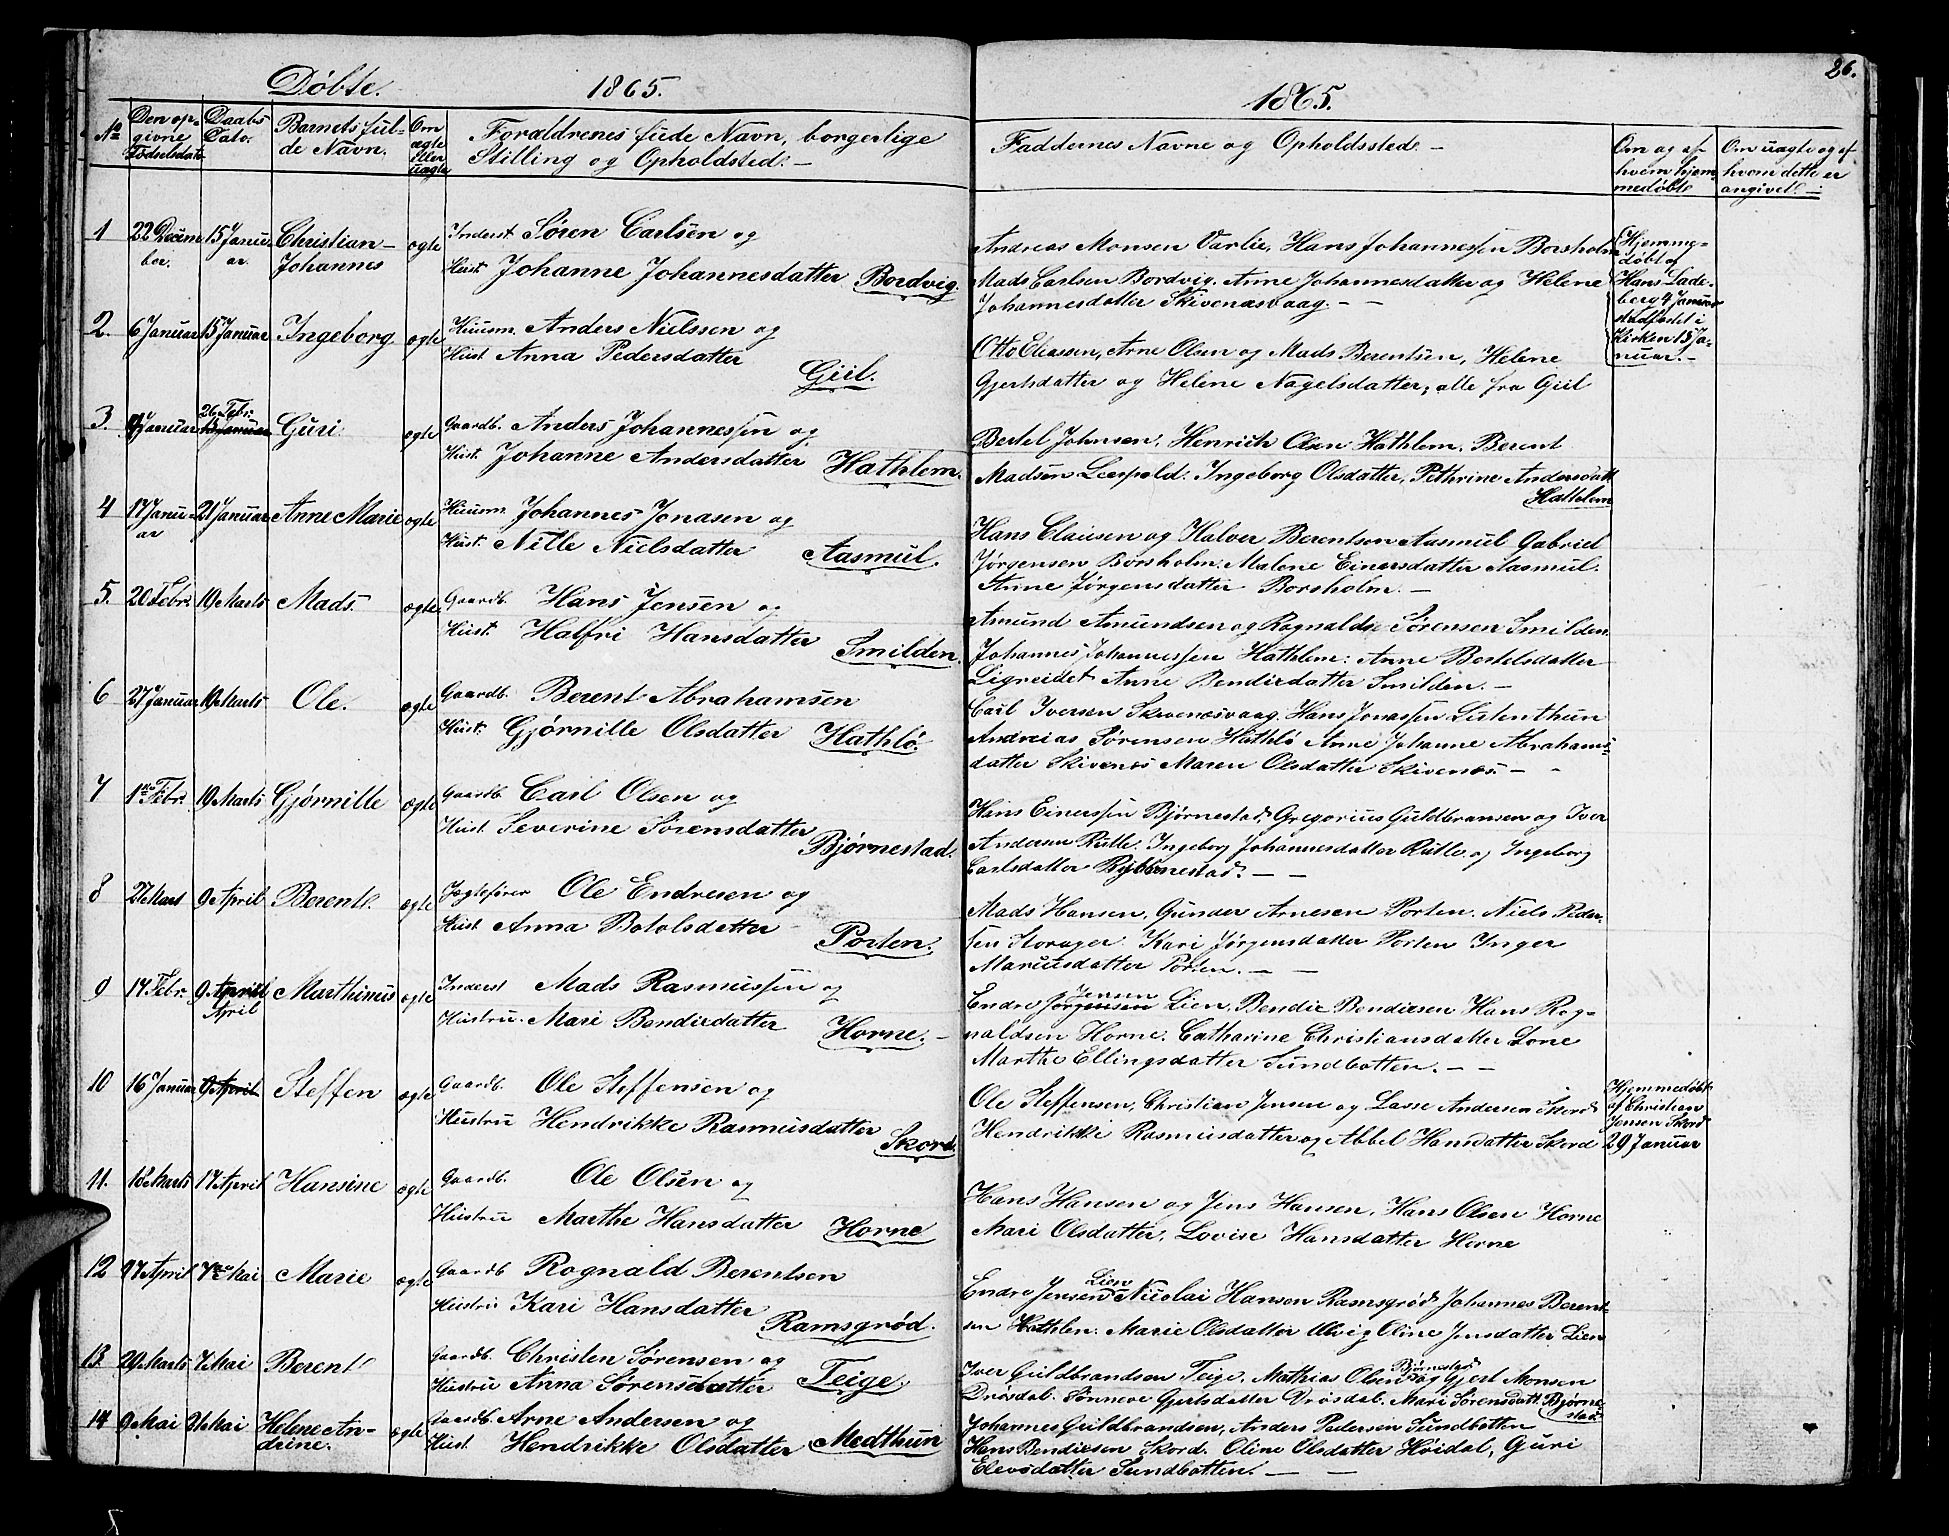 Døbte. 1865.
No
Den opgivne Fødselsdato
Daabs Dato.
Barnets fulde Navn.
Om ægte eller uægte
Forældrenes fude Navn, borgerlige
Stilling og Opholdsted. —
1 22 December. 15 Januar. Christian Johannes ægte Inderst Søren Carlsen og
Hust. Johanne Johannesdatter Bordvig.
2. 6 Januar 15 Januar Ingeborg ægte Huusm. Anders Nielssen og
Hust. Anna Pedersdatter Giil.
3 9 Januar 26 Febr. Guri ægte Gaardb. Anders Johannessen og
Hust. Johanne Andersdatter Hathlem.
4 17 Januar 21 Januar Anne Marie ægte Huusm. Johannes Jonasen og
Hust. Nille Nielsdatter Aasmul.
5. 20 Febr. 19 Marts Mads. ægte Gaardb. Hans Jensen og
Hust. Halfri Hansdatter Smilden.
6 27 Januar 19 Marts Ole. ægte Gaardb. Berent Abrahamsen
Hust. Gjørnille Olsdatter Hathlø.
7 1ste Febr. 19 Marts Gjørnille ægte Gaardb. Carl Olsen og
Hust. Severine Sørensdatter Bjørnestad.
8 27 Mart 9 April Berent. ægte Jægtefører Ole Endresen og
Hust. Anna Botolsdatter Porten.
9 14 Febr. 9 April April Marthinus ægte Inderst Mads Rasmussen og
Hustru. Mari Bendixdatter Horne. —
10 16 Januar 9 April Steffen ægte Gaardb. Ole Steffensen og
Hustru Hendrikke Rasmusdatter Skord.
11. 18 Marts 17 April Hansine ægte Gaardb. Ole Olsen og
Hustru Marthe Hansdatter Horne
12 27 April 7de Mai Marie ægte Gaardb Rognald Berentsen
Hustru Kari Hansdatter Ramsgrød.
13. 29 Marts 7 Mai Berent ægte Gaardb. Christen Sørensen og
Hustru Anna Sørensdatter Teige.
14 9 Mai 21 Mai Helene Andrine. ægte Gaardb. Arne Andersen og
Hust. Hendrikke Olsdatter Medthun
26.
1865.
Faddernes Navne og Opholdssted. —
Om og af hvem hjemmedøbt
Om uægte og af hvem dette er angivet. —
Andreas Monsen Varlie, Hans Johannessen Borsholm
Mads Carlsen Bordvig. Anne Johannesdatter og Helene
Johannesdatter Skivenæsvaag. — —
Hjemmedøbt af
Hans Ladeberg 9 Januar
stadfæstet i
Kirken 15 Januar. —
Otto Eliassen, Arne Olsen og Mads Berentsen, Helene
Gjertsdatter og Helene Nagelsdatter, alle fra Giil
Bertel Johnsen, Henrich Olsen Hathlem. Berent
Madsen Leerpold. Ingeborg Olsdatter, Pethrine Andersdatt
Hathlem
Hans Clausen og Halver Berentson Aasmul Gabriel
Jørgensen Borsholm. Malene Einersdatter Aasmul.
Anne Jørgensdatter Borsholm. —
Amund Amundsen og Rognald Sørensen Smilden.
Johannes Johannessen Hathlem: Anne Bertelsdatter
Ligreidet Anne Bendixdatter Smilden. —
Carl Iversen Skivenæsvaag. Hans Jonassen Listenthun
Andreias Sørensen Hathlø Anne Johanne Abrahamsdatter Skivenes Maren Olsdatter Skivenæs. — —
Hans Einersen Bjørnestad, Gregorius Guldbransen og Iver
Andersen Rutle. Ingeborg Johannesdatter Rutle og Ingeborg
Carlsdatter Bjørnestad. — —
Mads Hansen, Gunder Arnesen Porten. Niels Pedersen Storager. Kari Jørgensdatter Porten Inger
Mariusdatter Porten. — —
Endre Jensen Lien, Bendix Bendixsen Hans Rognaldsen Horne. Catharine Christiansdatter Lone
Marthe Ellingsdatter Sundbotten. — —
Ole Steffensen, Christian Jensen og Lasse Andersen Skord
Hendrikke Rasmusdatter og Abbel Hansdatter Skord
Hjemmedøbt
af Christian
Jensen Skord
29 Januar
Hans Hansen og Jens Hansen, Hans Olsen Horne
Mari Olsdatter, Lovise Hansdatter Horne
Endre Jensen Lien Nicolai Hansen Ramsgrød Johannes Berentsen Hathlem. Marie Olsdatter Ulvig Oline Jensdatter Lien
Iver Guldbrandsen Teige. Mathias Olsen Bjørnestad og Gjert Monsen
Drøsdal. Sønneve Gjertsdatter Drøsdal. Mari Sørensdatt. Bjørnestad
Johannes Guldbrandsen, Anders Pedersen Sundbotten
Hans Bendixsen Skord. Oline Olsdatter Hovdal, Guri
Elevsdatter Sundbotten. — —